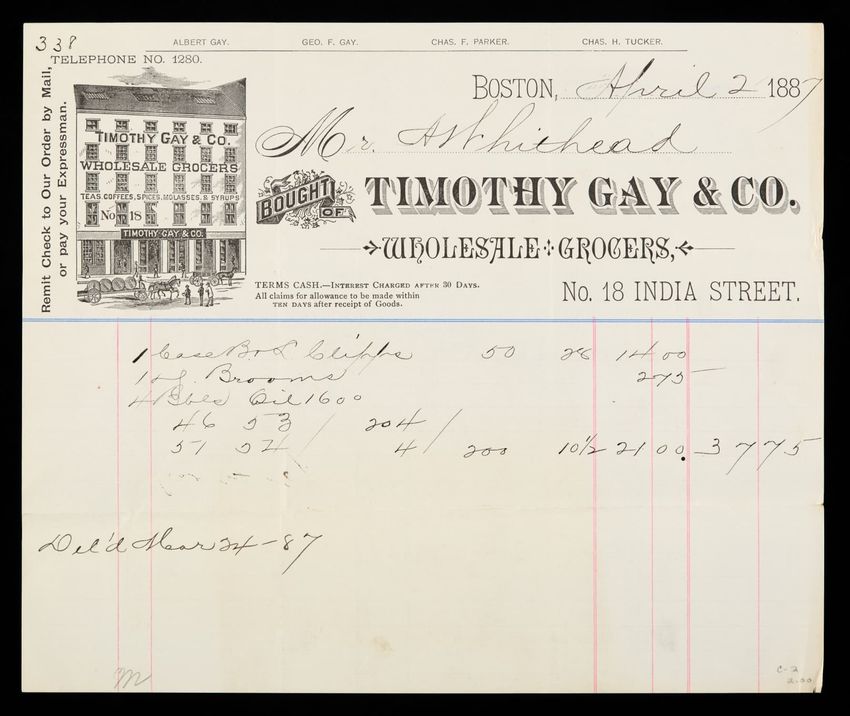 338
ALBERT GAY. GEO. F. GAY. CHAS. F. PARKER. CHAS. H. TUCKER.
TELEPHONE NO. 1280.
Remit Check to Our Order by Mail,
or pay your Expressman.
BOSTON, April 2 1887
Mr. A Whithead
TIMOTHY GAY & CO.
WHOLESALE GROCERS
TEAS, COFFEES, SPICES, MOLASSES, & SYRUPS
No 18
TIMOTHY GAY & CO.
BOUGHT OF TIMOTHY GAY & CO.
WHOLESALE GROCERS,
TERMS CASH.—INTEREST CHARGED AFTER 30 DAYS.
All claims for allowance to be made within
TEN DAYS after receipt of Goods.
No. 18 INDIA STREET.
1 Case 50 28 14 00
1 Brooms 2 75
4 Bbls Oil 1600
46 53 / 204 /
51 54 / 4 / 200 10 1/2 21 00. 37 75
Del'd Mar 24-87
M
C-2
2.00